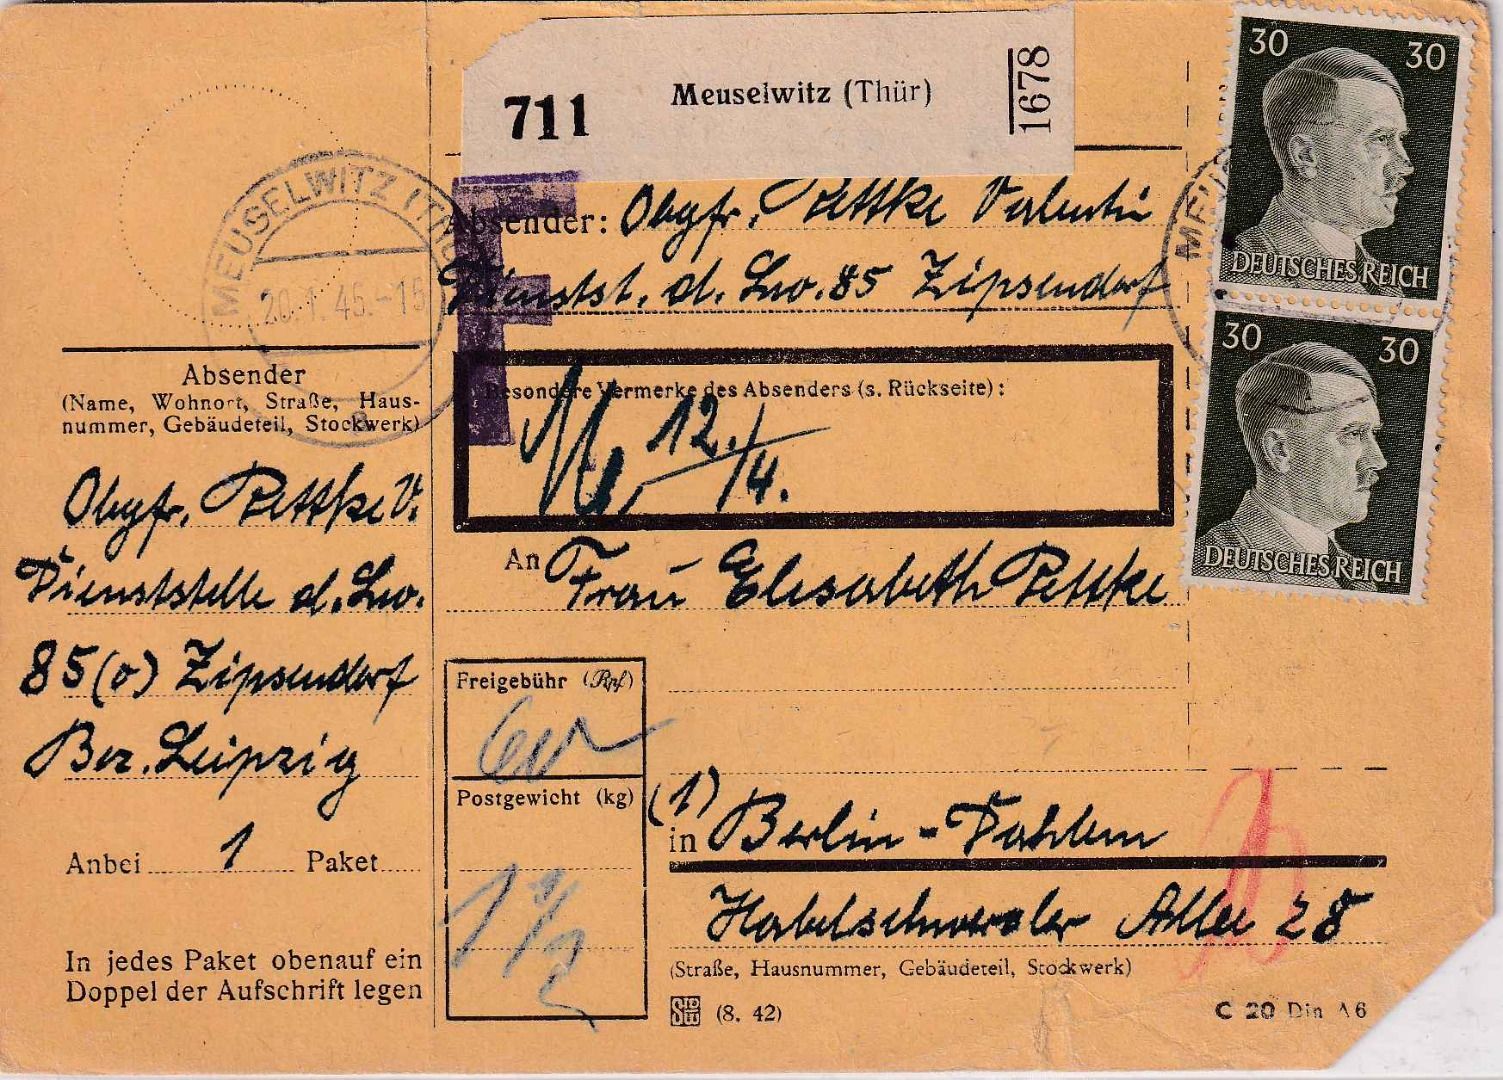 711
Meuselwitz (Thür)
1678
30 30
DEUTSCHES REICH
30 30
DEUTSCHES REICH
MEUSELWITZ (THÜ
20.1.45.-15
a
MEUS
Absender: Obgfr. Pettke Valentin
Dienstst. d. Lw. 85 Zipsendorf
Besondere Vermerke des Absenders (s. Rückseite):
12./4.
Absender
(Name, Wohnort, Straße, Haus-
nummer, Gebäudeteil, Stockwerk)
Obgfr. Pettke V.
Dienststelle d. Lw.
85 (o) Zipsendorf
Bez. Leipzig
Anbei 1 Paket
In jedes Paket obenauf ein
Doppel der Aufschrift legen
An Frau Elisabeth Pettke
Freigebühr (Rpf)
60
Postgewicht (kg)
(1)
in Berlin-Dahlem
Habelschwerdter Allee 28
(Straße, Hausnummer, Gebäudeteil, Stockwerk)
(8. 42)
C 20 Din A6